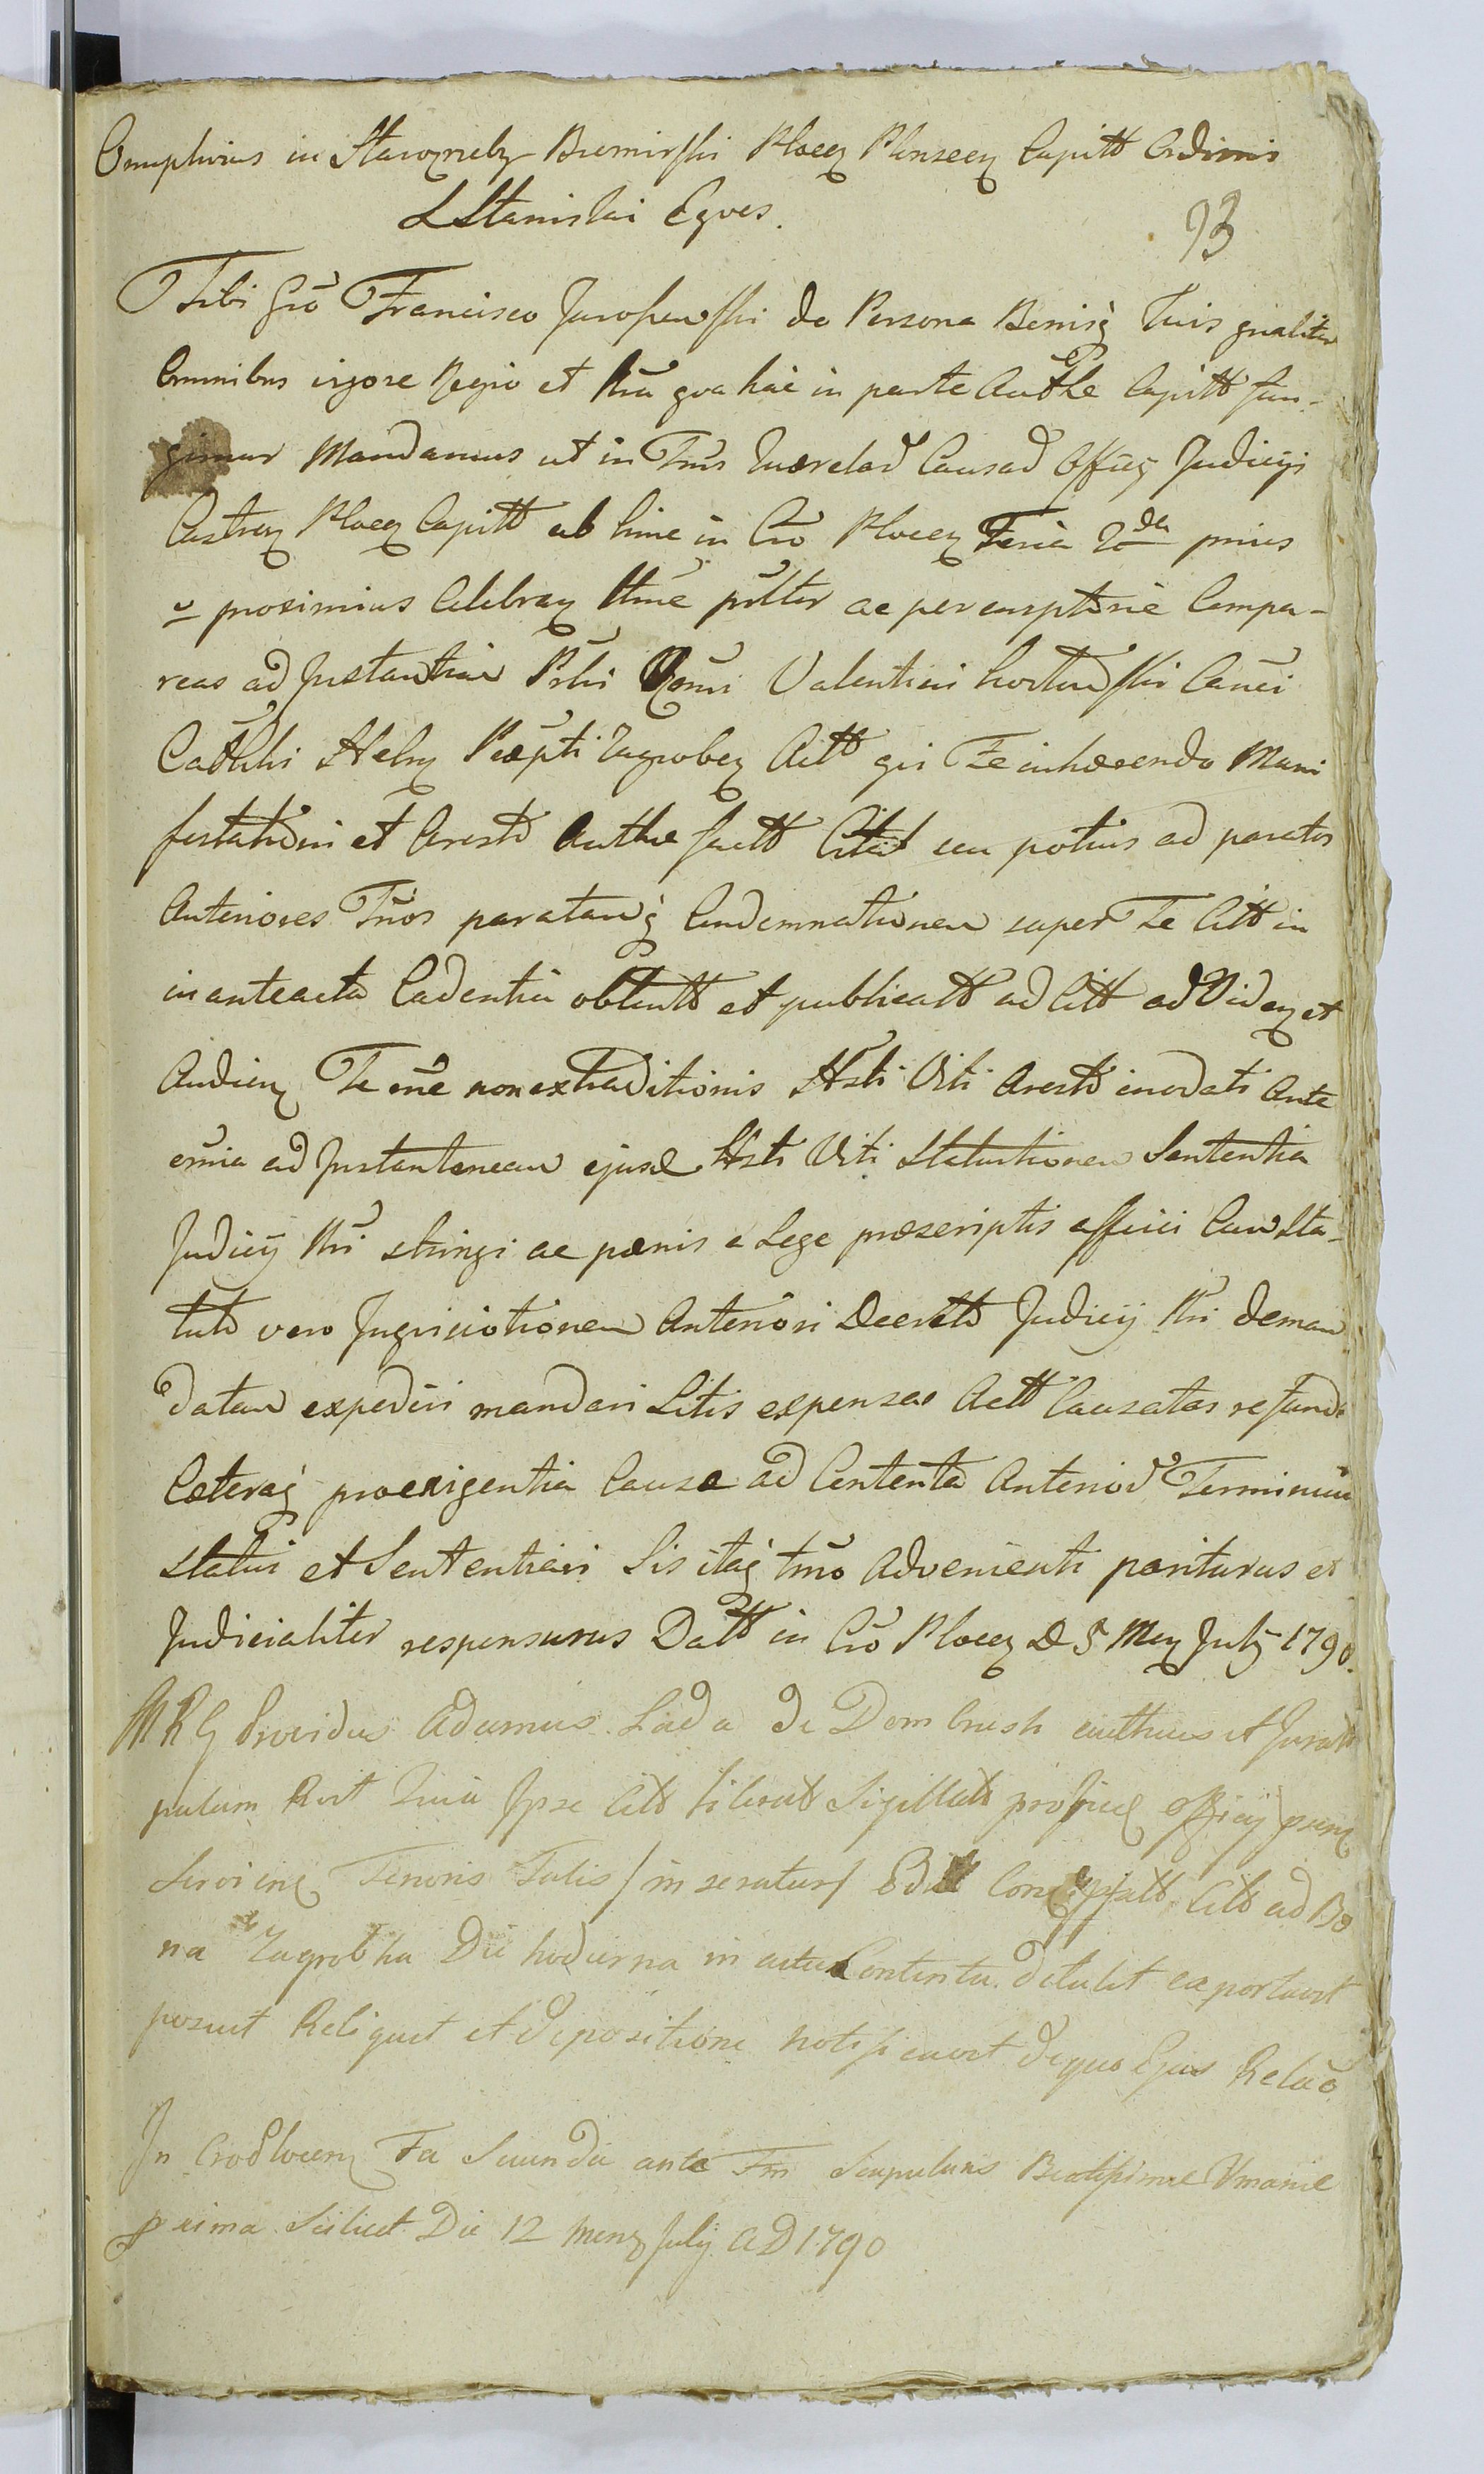 Onuphrius in Staroźreby Bromirski Plocen Plonscen Capitt Ordinis
S Stanislai Eques.
93
Tibi Gro Francisco Jaroszewski de Persona Bonisq Tuis gnaliter
Omnibus vigore Regio et Nra qua hac in parte Authe Capitt fun-
gimur Mandamus ut in Tmis Quærelar Causar Officÿ Judicÿ
Castren Plocen Capitt ab hinc in Cro Plocen Feria 2da prius
et proximius Celebran tme psltr ac peremptorie Compa-
reas ad Instantiam Prlis Rndi Valentini Canci
Cathlis Præpti Zagroben Actt qui Te inhærendo Mani
festationi et Aresto Authe factt Citat seu potius ad paratos
Anteriores Tmos paratamq Condemnationem super Te Citt in
in anteacta Cadentia obtentt et publicatt ad Citt ad Viden et
Audien Te one non extraditionis Hsti Viti Aresto inodati Ante
omia ad Instantaneam ejusd Hsti Viti Statutionem Sententia
Judicÿ Nri stringi ac pœnis a Lege præscriptis affici Eum Sta-
tuto vero Inquisitionem Anteriori Decreto Judicÿ Nri deman
datam expediri mandari Litis expensas Actt Causatas refundi
Cæteraq pro exigentia Causæ ad Contenta Anterior Terminum
statui et Sententiari Sis itaq tmo Advenienti pariturus et
Judicialiter responsurus Datt in Cro Plocen D 5 Men July 1790.
MRG Providus Adamus Lada de Dombrusk authus et Juratt
palam Rcit Quia Ipse Citt literatt Sigillatt profficÿ officÿ prnt
Servien Tenoris Talis / in seratur / Edit Citt ad Bo
na Zagrobka Die hodierna in actu Contenta detulit exportavit
posuit Reliquit et depositione notificavit de quo Ejus Relao
In Cro Plocen Fa Secunda ante Fm Scapularis Beatissimæ V Mariæ
prima Scilicet Die 12 Mens July AD 1790